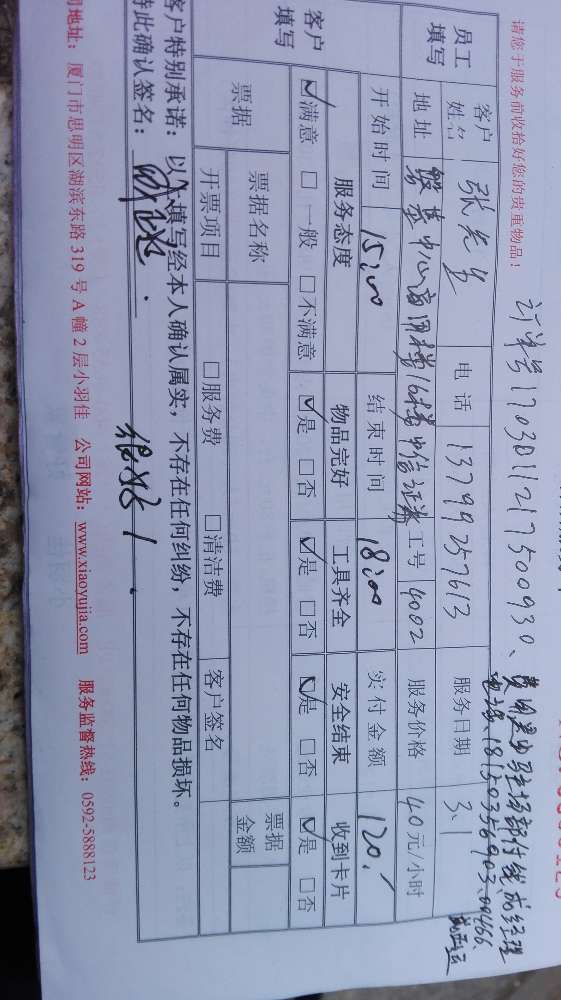 请您于服务前收拾好您的贵重物品！
订单号1703011217500930、费用是由驻场部付钱，成经理
电话、18150356903、00466、
员工填写 客户姓名 张先生 电话 13799257613 服务日期 3.1
地址 磐基中心商用楼16楼中信证券 工号 4002 服务价格 40元/小时
开始时间 15:00 结束时间 18:00 实付金额 120.
客户填写 服务态度 物品完好 工具齐全 安全结束 收到卡片
☑满意 □一般 □不满意 ☑是 □否 ☑是 □否 ☑是 □否 ☑是 □否
票据 票据名称 票据金额
开票项目 □服务费 □清洁费 客户签名
客户特别承诺：以上填写经本人确认属实，不存在任何纠纷，不存在任何物品损坏。
特此确认签名：
很好！
司地址：厦门市思明区湖滨东路319号A幢2层小羽佳 公司网站：www.xiaoyujia.com 服务监督热线：0592-5888123